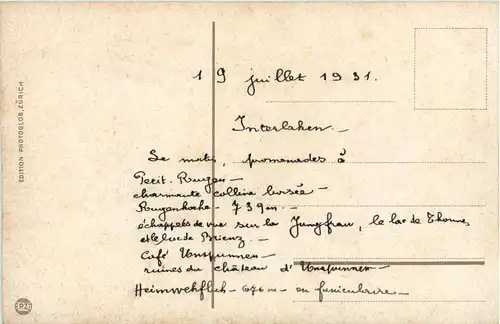 19 juillet 1931.
Interlaken.-
Le matin, promenades à
Petit. Rugen -
charmante colline boisée -
Rugenhöhe - 739m. -
échappées de vue sur la Jungfrau, le lac de Thoune,
et le lac de Brienz. -
Café Unspunnen -
ruines du château d'Unspunnen -
Heimwehfluh - 676 m - ou funiculaire -
EDITION PHOTOGLOB, ZÜRICH
PZ